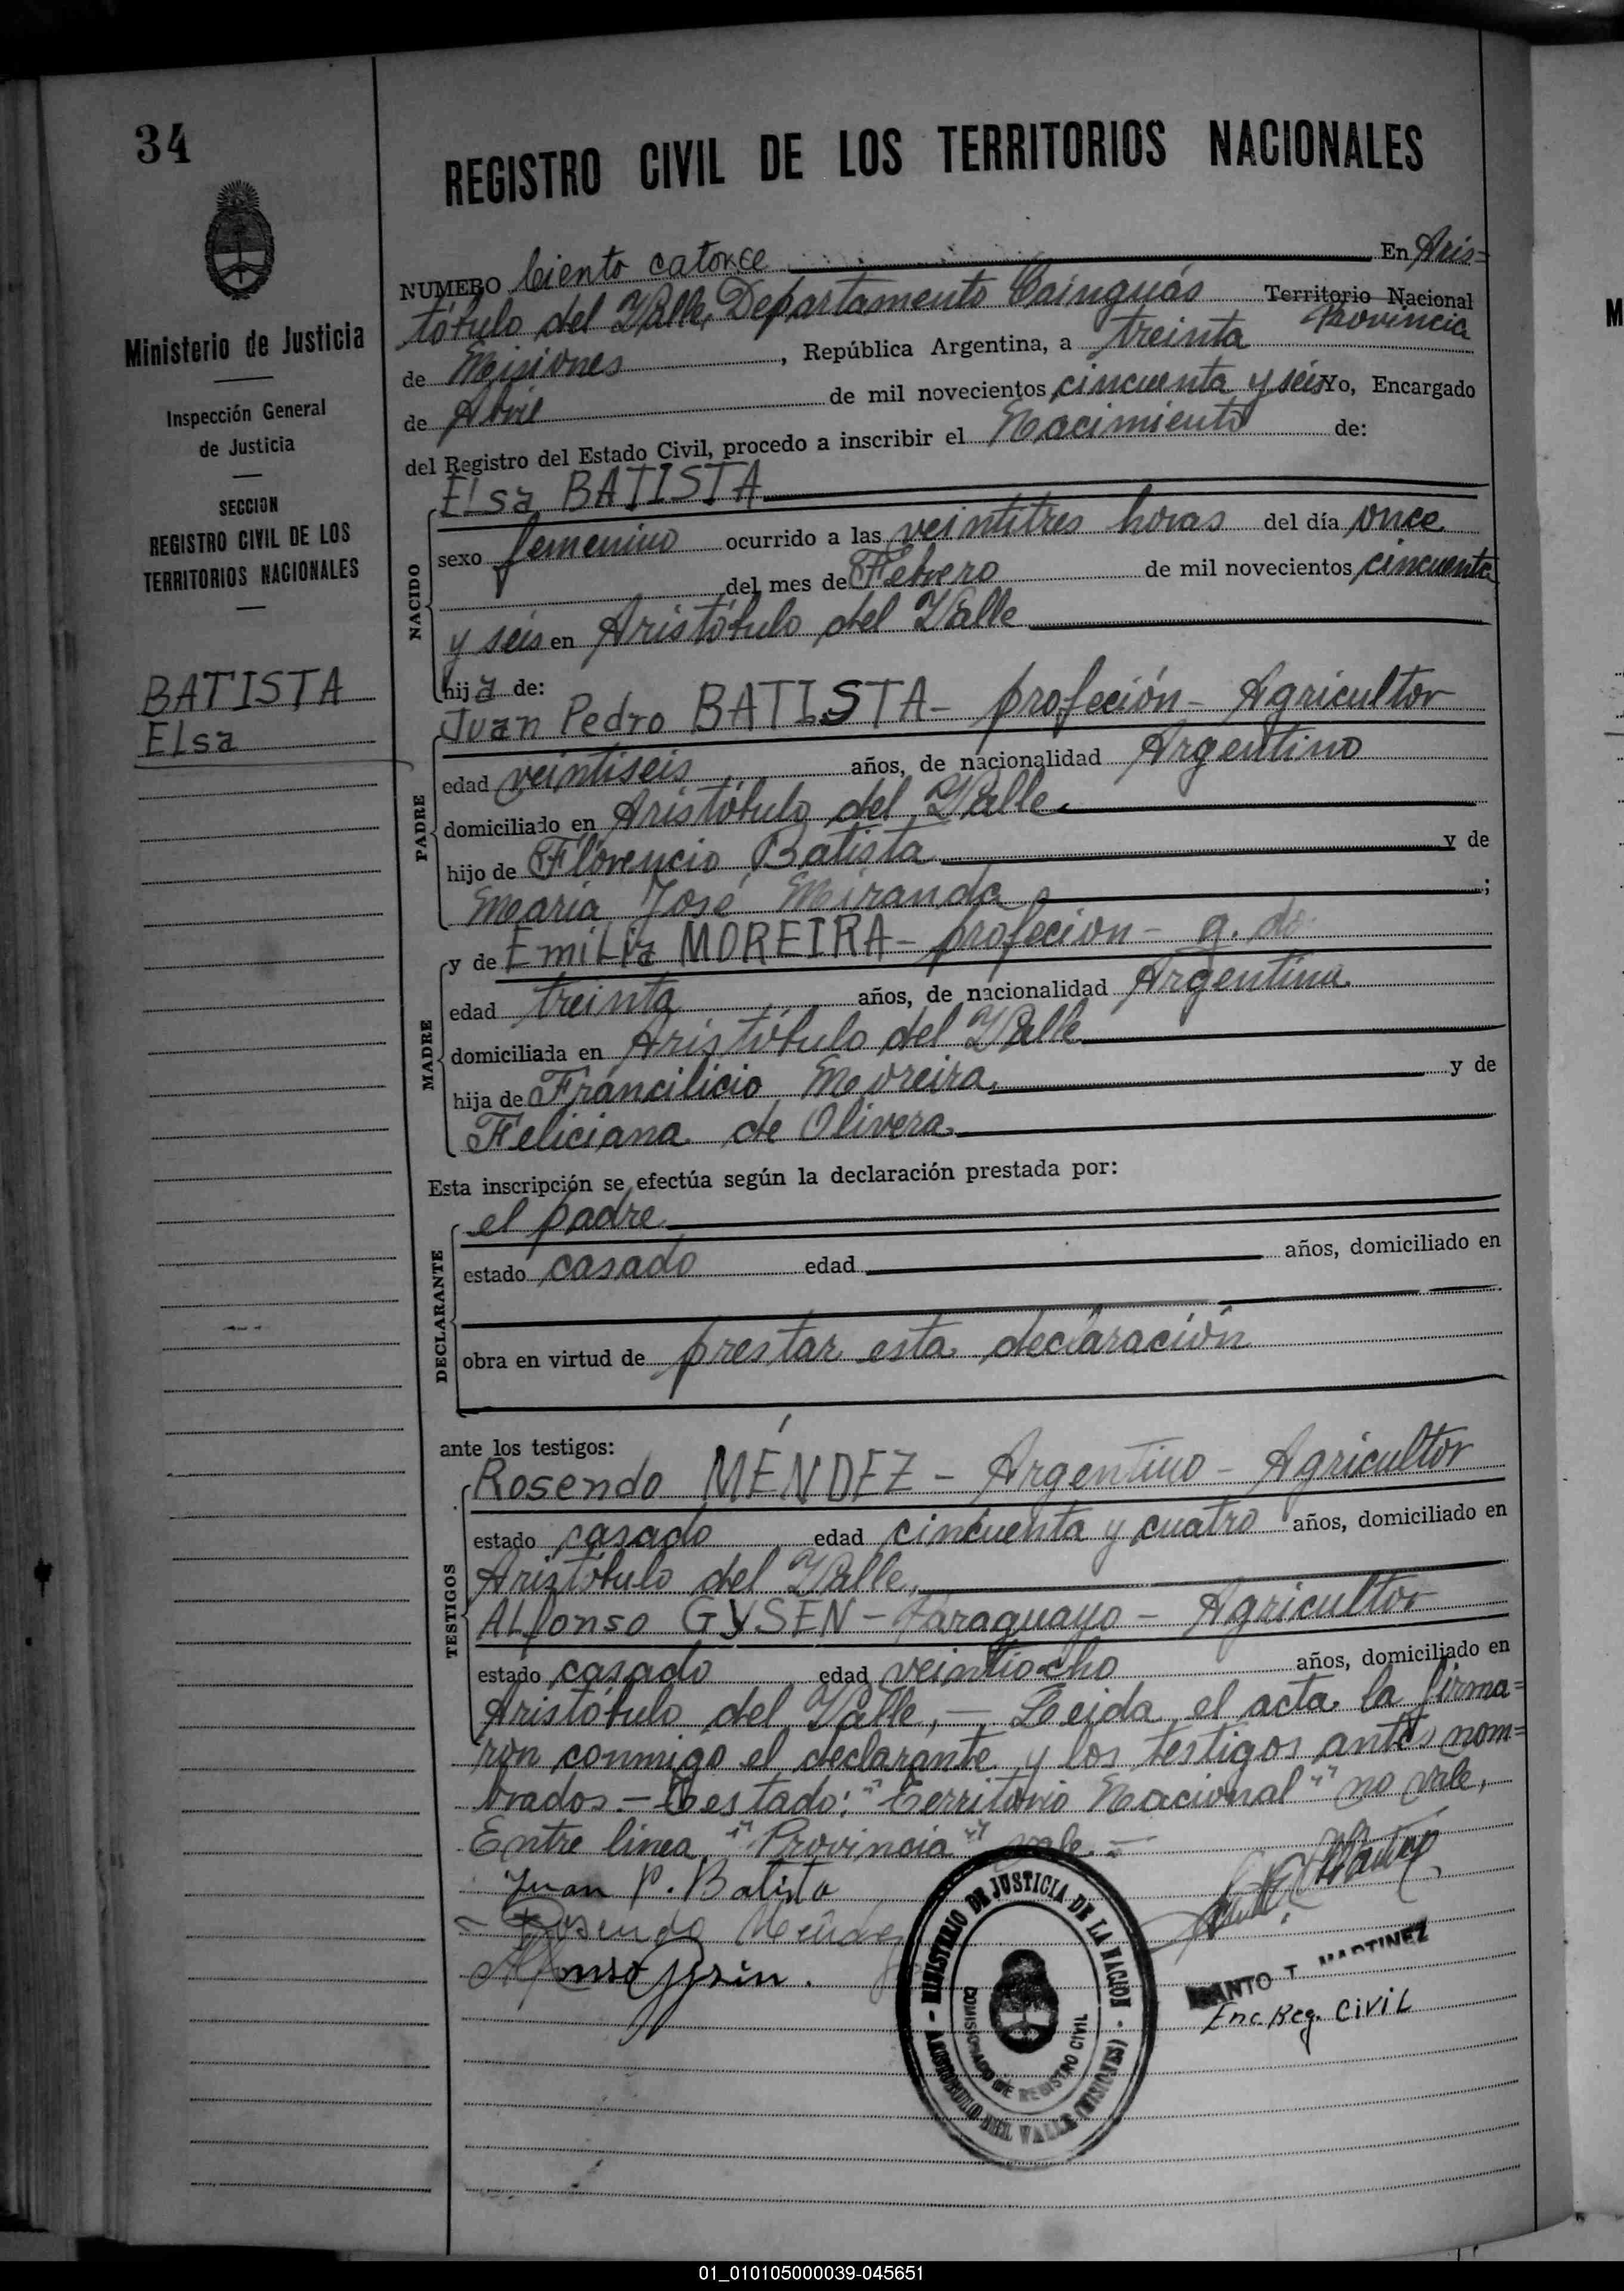 34
REGISTRO CIVIL DE LOS TERRITORIOS NACIONALES
Ministerio de Justicia
Inspección General
de Justicia
SECCION
REGISTRO CIVIL DE LOS
TERRITORIOS NACIONALES
BATISTA
Elsa
NUMERO Ciento catorce En Aris=
tóbulo del Valle, Departamento Cainguás Territorio Nacional
Provincia
de Misiones, República Argentina, a treinta
de Abril de mil novecientos cincuenta y seis Yo, Encargado
del Registro del Estado Civil, procedo a inscribir el Nacimiento de:
NACIDO
Elsa BATISTA
sexo femenino ocurrido a las veintitres horas del día once
del mes de Febrero de mil novecientos cincuenta
y seis en Aristóbulo del Valle
hija de:
PADRE
Juan Pedro BATISTA - profeción - Agricultor
edad veintiseis años, de nacionalidad Argentino
domiciliado en Aristóbulo del Valle
hijo de Florencio Batista y de
María José Miranda ;
MADRE
y de Emilia MOREIRA - profecion - q. do
edad treinta años, de nacionalidad Argentina
domiciliada en Aristóbulo del Valle
hija de Francilicio Moreira y de
Feliciana de Olivera
Esta inscripción se efectúa según la declaración prestada por:
DECLARANTE
el padre
estado casado edad años, domiciliado en
obra en virtud de prestar esta declaración
ante los testigos:
TESTIGOS
Rosendo MÉNDEZ - Argentino - Agricultor
estado casado edad cincuenta y cuatro años, domiciliado en
Aristóbulo del Valle,
Alfonso GYSEN - Paraguayo - Agricultor
estado casado edad veintiocho años, domiciliado en
Aristóbulo del Valle, - Leida el acta la firma=
ron conmigo el declarante y los testigos antes nom=
brados. - Testado: "Territorio Nacional" no vale,
Entre linea "Provincia" vale. -
Juan P. Batista
Rosendo Mendez
Alfonso Gysin.
MINISTERIO DE JUSTICIA DE LA NACION
COMISIONADO DE REGISTRO CIVIL
ARISTOBULO DEL VALLE (MISIONES)
T. MARTINEZ
Enc. Reg. Civil
01_010105000039-045651